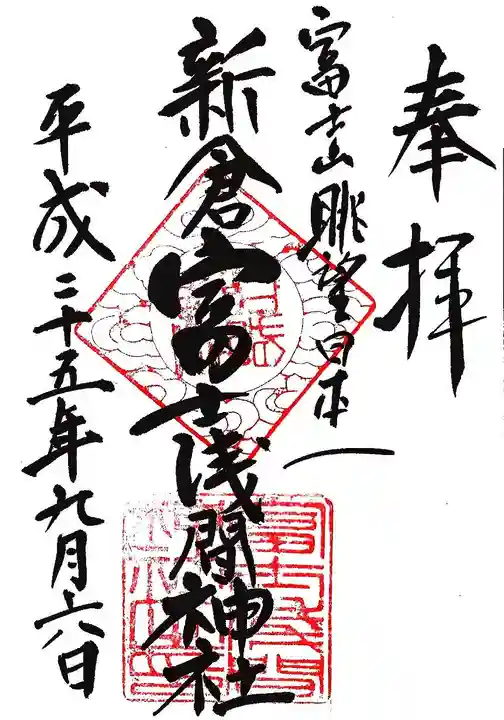 奉拝
富士山眺望日本一
新倉富士浅間神社
平成二十五年九月六日